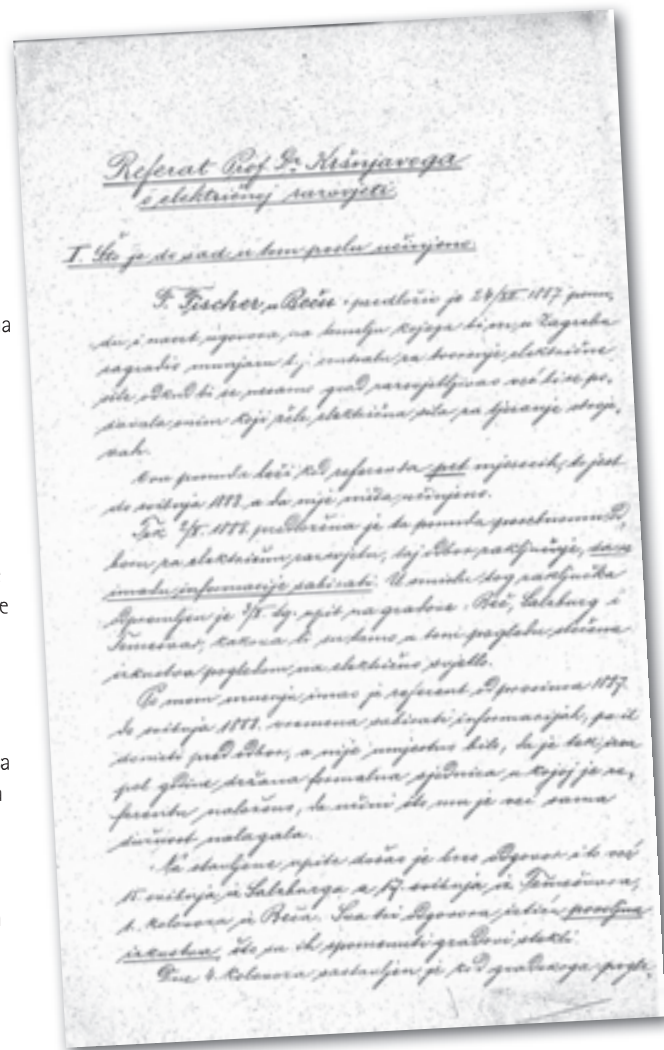 Referat Prof. Dr. Kršnjavoga
o električnoj razsvjeti.
I. Što je do sad u tom poslu učinjeno.
F. Fischer u Beču predložio je 24/XII 1887 ponu-
du i nacrt ugovora, na temelju kojega bi se u Zagrebu
sagradio munjara t.j. centrala za tvorenje električne
sile, odkud bi se nesamo grad razsvjetljivao već bi se po-
davala onim koji žele električna sila za tjeranje stroje-
vah.
Ova ponuda leži kod referenta pet mjesecih, to jest
do svibnja 1888. a da nije ništa učinjeno.
Tek 2/V. 1888. predložena je ta ponuda posebnomu od-
boru za električnu razsvjetu, taj odbor zaključuje,
imadu informacije sabirati. U smislu tog zaključka
odpremljen je /V. tg. upit na gradove. Beč, Salzburg i
Temešvar, kakova bi su tamo u tom pogledu stečena
izkustva pogledom na električno svjetlo.
Po mom mnenju imao je referent od prosinca 1887.
do svibnja 1888. vremena sabirati informacijah, pa ih
donieti pred odbor, a nije umjestno bilo, da je tek iza
pol godine držana formalna sjednica u kojoj je re-
ferentu naloženo, da učini što mu je već sama
dužnost nalagala.
Na stavljene upite došao je brzo odgovor i to već
15. svibnja iz Salzburga a 17. svibnja iz Temešvara,
1. kolovoza iz Beča. Sva tri odgovora ističu povoljna
izkustva, što su ih spomenuti gradovi stekli.
Dne 4. kolovoza sastavljen je kod gradskoga pogla-
a
e
a